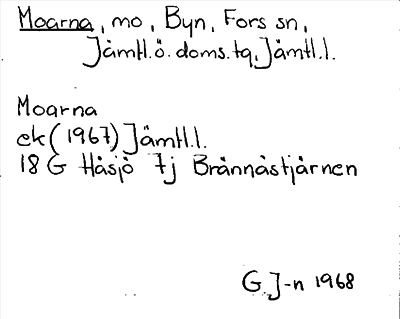 Moarna, mo, Byn, Fors sn,
Jämtl.ö.doms.tg, Jämtl.l.
Moarna
ek (1967) Jämtl.l.
18 G Håsjö 7j Brännåstjärnen
G.J-n 1968